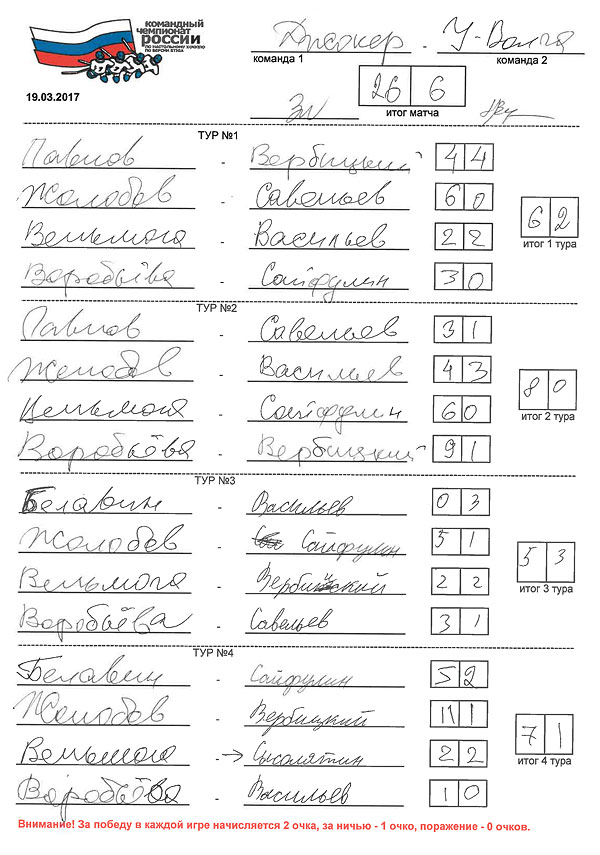 КОМАНДНЫЙ
ЧЕМПИОНАТ
РОССИИ
ПО НАСТОЛЬНОМУ ХОККЕЮ
ПО ВЕРСИИ ВТХФА
Джокер - У-Волга
команда 1 команда 2
26 6
19.03.2017
итог матча
ТУР №1
Павлов - Вербицкий 4 4
Жолобов - Савельев 6 0
Вельмога - Васильев 2 2
Воробьёва - Сайфулин 3 0
6 2
итог 1 тура
ТУР №2
Павлов - Савельев 3 1
Жолобов - Васильев 4 3
Вельмога - Сайфулин 6 0
Воробьёва - Вербицкий 9 1
8 0
итог 2 тура
ТУР №3
Белавин - Васильев 0 3
Жолобов - Сайфулин 5 1
Вельмога - Вербицкий 2 2
Воробьёва - Савельев 3 1
5 3
итог 3 тура
ТУР №4
Белавин - Сайфулин 5 2
Жолобов - Вербицкий 11 1
Вельмога - → Сысолятин 2 2
Воробьёва - Васильев 1 0
7 1
итог 4 тура
Внимание! За победу в каждой игре начисляется 2 очка, за ничью - 1 очко, поражение - 0 очков.